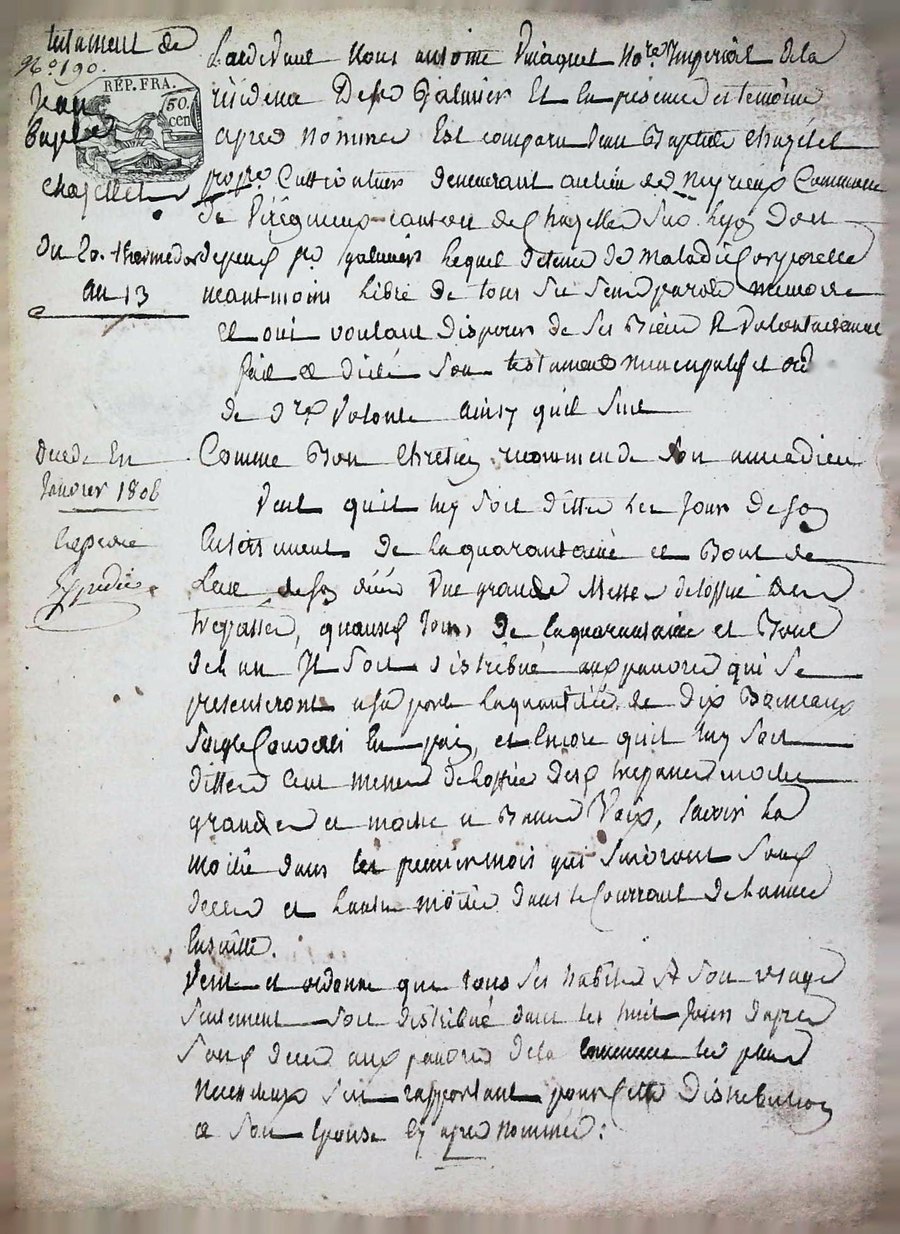 testament de
No. 190.
RÉP. FRA.
50.
cen
Jean
Baptiste
Chazellet
du 20. thermidor
an 13
Pardevant Nous antoine notre Imperial de la
résidence de St Galmier Et En présence des temoins
apres nommés Est comparu Jean Baptiste Chazelet
propre Cultivateur demeurant au lieu de Meyrieux Commune
de Viregneux canton de Chazelle sur Lyon dont
depend St galmier Lequel detenu de maladie Corporelle
neantmoins libre de tous ses sens parole memoire
et oui voulant disposer de ses Biens a volontairement
fait et dicté son testament nuncupatif et ord
de dre volonté ainsy qu'il suit
decede En
Janvier 1806
Expedie
Comme Bon Chretien recommende son ame a dieu
Veut qu'il luy soit dittes les jour de son
Enterrement de la quarantaine et Bout de
L'an de son décés une grande Messe de l'office des
trepassés, auxquels jours de la quarantaine et Bout
de l'an Il soit distribué aux pauvres qui se
presenteront a sa porte la quantité de Dix Barneaux
Seigle Convertis En pain, et Encore quil luy soit
dittes Cent messes de l'office des trepassés moitie
grandes et moitie a Basses Voix, savoir La
moitié dans les premiers mois qui suivront son
deces et L'autre moitié dans le Courrant de L'année
Ensuitte.
Veut et ordonne que tous ses habits A son usage
seulement soit distribué dans les huit jours d'apres
son deces aux pauvres de la Commune les plus
necessiteux s'en rapportant pour Cette Distribution
a son Epouse Cy apres nommée: